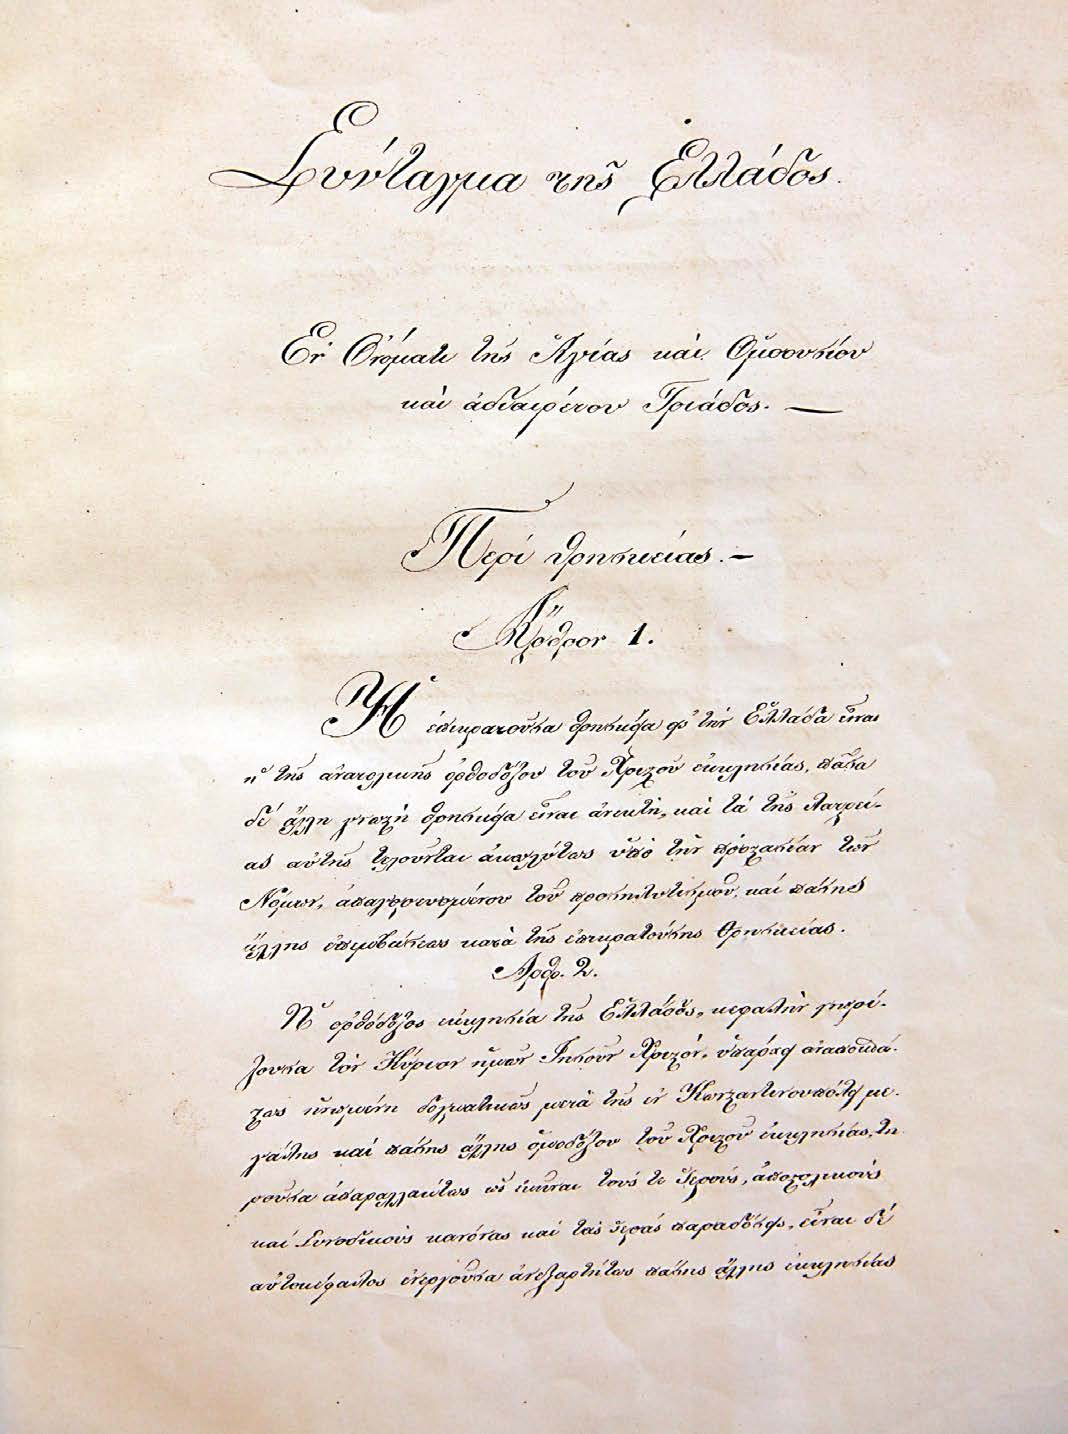 Σύνταγμα τῆς Ἑλλάδος.
Ἐν Ὀνόματι τῆς Ἁγίας καὶ Ὁμοουσίου
καὶ ἀδιαιρέτου Τριάδος. —
Περί θρησκείας. —
Ἄρθρον 1.
Ἡ ἐπικρατοῦσα θρησκεία εἰς τὴν Ἑλλάδα εἶναι
ἡ τῆς ἀνατολικῆς ὀρθοδόξου τοῦ Χριστοῦ ἐκκλησίας, πᾶσα
δέ ἄλλη γνωστὴ θρησκεία εἶναι ἀνεκτὴ, καὶ τὰ τῆς λατρεί-
ας αὐτῆς τελοῦνται ἀκωλύτως ὑπὸ τὴν προστασίαν τῶν
Νόμων, ἀπαγορευομένου τοῦ προσηλυτισμοῦ, καὶ πάσης
ἄλλης ἐπεμβάσεως κατὰ τῆς ἐπικρατούσης θρησκείας.
Ἀρθρ. 2.
Ἡ ὀρθόδοξος ἐκκλησία τῆς Ἑλλάδος, κεφαλὴν γνωρί-
ζουσα τὸν Κύριον ἡμῶν Ἰησοῦν Χριστόν, ὑπάρχει ἀναποσπά-
στως ἡνωμένη δογματικῶς μετὰ τῆς ἐν Κωνσταντινουπόλει με-
γάλης καί πάσης ἄλλης ὁμοδόξου τοῦ Χριστοῦ ἐκκλησίας, τη
ροῦσα ἀπαραλλάκτως ὡς ἐκεῖναι τούς τε Ἱερούς, ἀποστολικούς
καί Συνοδικούς κανόνας καί τάς ἱεράς παραδόσεις, εἶναι δέ
αὐτοκέφαλος ἐνεργοῦσα ἀνεξαρτήτως πάσης ἄλλης ἐκκλησίας